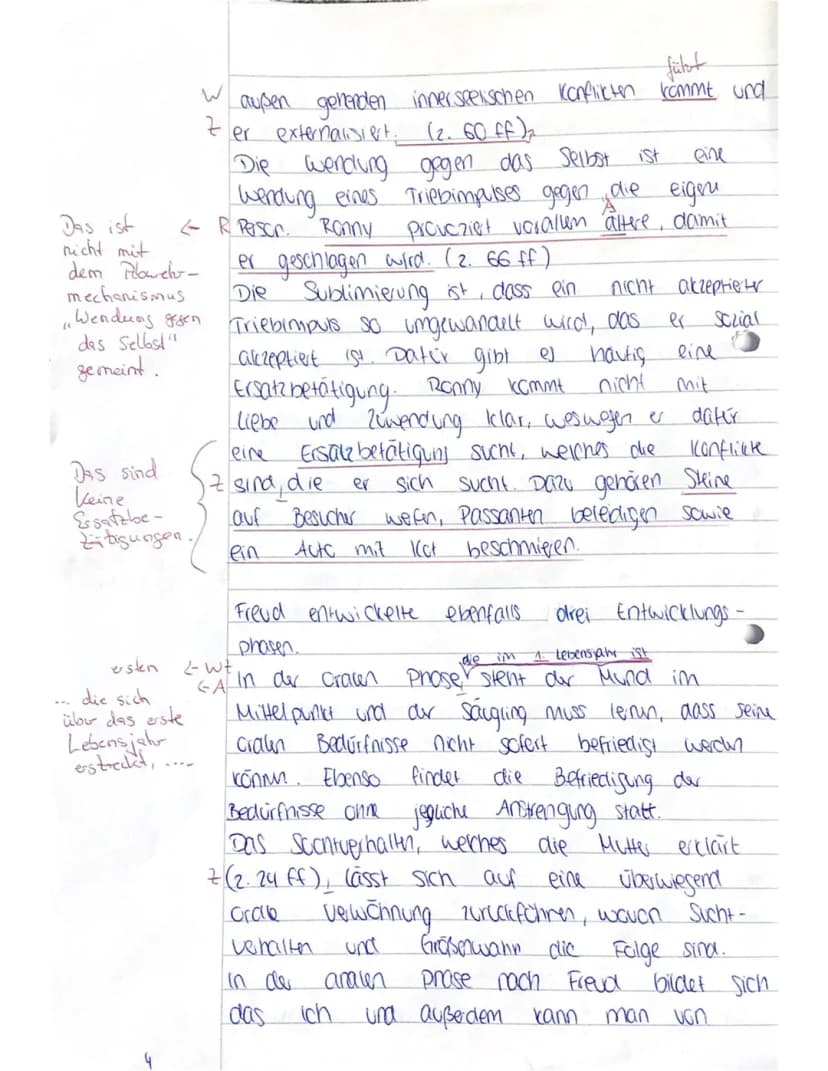 führt
W außen gehenden innerseelischen Konflikten kommt und
Z er externalisiert. (Z. 60 ff),
Die Wendung gegen das Selbst ist eine
Wendung eines Triebimpulses gegen die eigene
A
Das ist ← R Person. Ronny provoziert vorallem ältere, damit
nicht mit er geschlagen wird. (Z. 66 ff)
dem Abwehr- Die Sublimierung ist, dass ein nicht akzeptierter
mechanismus Triebimpuls so umgewandelt wird, das er sozial
„Wendung gegen akzeptiert ist. Dafür gibt es häufig eine
das Selbst" Ersatzbetätigung. Ronny kommt nicht mit
gemeint. Liebe und Zuwendung klar, weswegen er dafür
eine Ersatzbetätigung sucht, welches die Konflikte
Das sind Z sind, die er sich sucht. Dazu gehören Steine
keine auf Besucher werfen, Passanten beleidigen sowie
Ersatzbe- ein Auto mit Kot beschmieren.
tätigungen.
Freud entwickelte ebenfalls drei Entwicklungs-
phasen.
die im 1. Lebensjahr ist
ersten ← Wt In der oralen Phase, steht der Mund im
← A
... die sich Mittelpunkt und der Säugling muss lernen, dass seine
über das erste oralen Bedürfnisse nicht sofort befriedigt werden
Lebensjahr können. Ebenso findet die Befriedigung der
erstreckt, .... Bedürfnisse ohne jegliche Anstrengung statt.
Das Suchtverhalten, welches die Mutter erklärt
Z (Z. 24 ff), lässt sich auf eine überwiegend
orale Verwöhnung zurückführen, wovon Sucht-
verhalten und Größenwahn die Folge sind.
In der analen Phase nach Freud bildet sich
das ich und außerdem kann man von
4